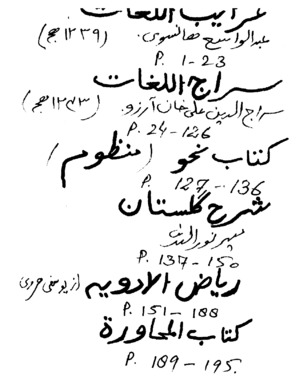 غرایب اللغات
عبدالواسع هانسوی. (۱۲۳۹ هج)
P. 1-23
سراج اللغات
سراج الدین علی خان آرزو. (۱۲۴۳ هج)
P. 24-126
کتاب نحو (منظوم)
P. 127-136
شرح گلستان
میر نور الله
P. 137-150
ریاض الادویه از یوسفی هروی
P. 151-188
کتاب المحاورة
P. 189-195.